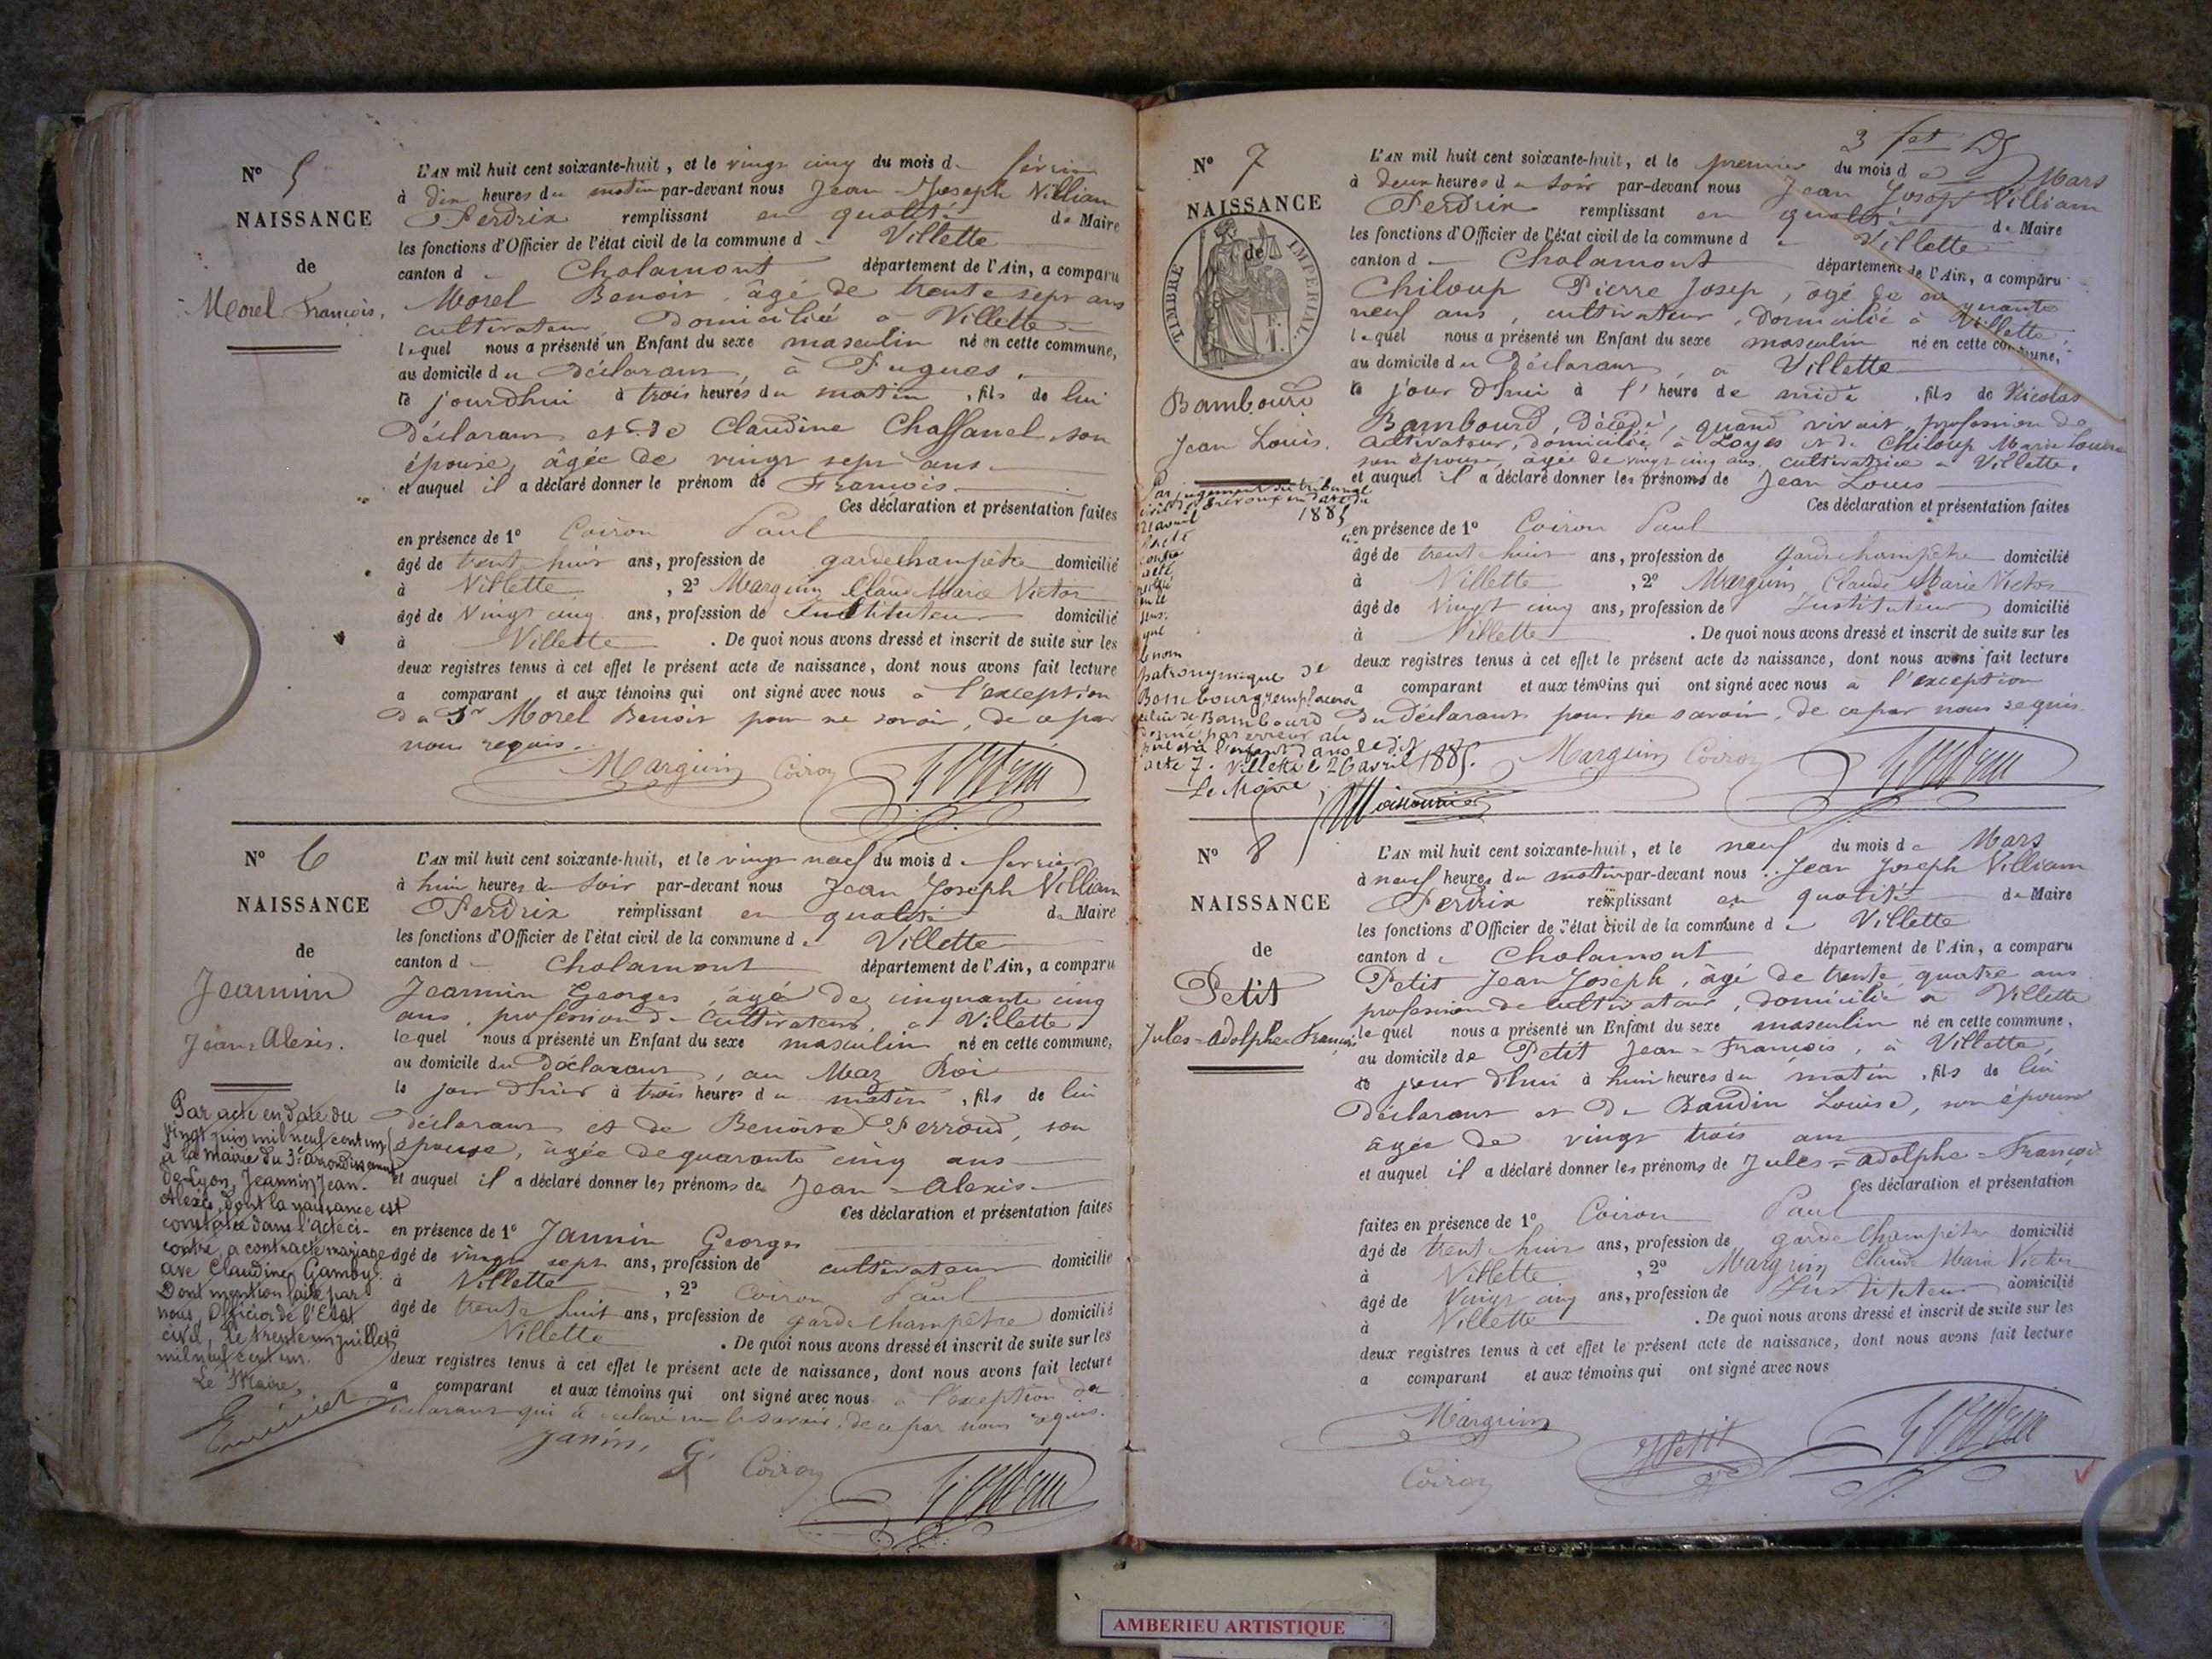 N° 5
NAISSANCE
de
Morel François.
L'AN mil huit cent soixante-huit, et le vingt cinq du mois de février
à dix heures du matin par-devant nous Jean-Joseph Villiam
Perdrix remplissant en qualité de Maire
les fonctions d'Officier de l'état civil de la commune de Villette
canton de Chalamont département de l'Ain, a comparu
Morel Benoit, âgé de trente sept ans
cultivateur, domicilié à Villette
lequel nous a présenté un Enfant du sexe masculin né en cette commune,
au domicile du Déclarant, à Fugues,
le jourdhui à trois heures du matin, fils de lui
Déclarant et de Claudine Chassanel, son
épouse, âgée de vingt sept ans
et auquel il a déclaré donner le prénom de François
Ces déclaration et présentation faites
en présence de 1° Coiron Paul
âgé de trent huit ans, profession de gardechampêtre domicilié
à Villette, 2° Marguin Claude Marie Victor
âgé de Vingt cinq ans, profession de Instituteur domicilié
à Villette. De quoi nous avons dressé et inscrit de suite sur les
deux registres tenus à cet effet le présent acte de naissance, dont nous avons fait lecture
a comparant et aux témoins qui ont signé avec nous à l'exception
du Sr Morel Benoit pour ne savoir, de ce par
nous requis.
Marguin Coiron
N° 6
NAISSANCE
de
Jeannin
Jean-Alexis.
L'AN mil huit cent soixante-huit, et le vingt neuf du mois de février
à huit heures du soir par-devant nous Jean Joseph Villiam
Perdrix remplissant en qualité de Maire
les fonctions d'Officier de l'état civil de la commune de Villette
canton de Chalamont département de l'Ain, a comparu
Jeannin Georges, âgé de cinquante cinq
ans, profession de Cultivateur, à Villette
lequel nous a présenté un Enfant du sexe masculin né en cette commune,
au domicile du Déclarant, au Mas Roi
le jour d'hui à trois heures du matin, fils de lui
déclarant et de Benoite Ferroud, son
épouse, âgée de quarante cinq ans
et auquel il a déclaré donner les prénoms de Jean-Alexis
Ces déclaration et présentation faites
en présence de 1° Jannin Georges
âgé de vingt sept ans, profession de cultivateur domicilié
à Villette, 2° Coiron Paul
âgé de trente huit ans, profession de garde champêtre domicilié
à Villette. De quoi nous avons dressé et inscrit de suite sur les
deux registres tenus à cet effet le présent acte de naissance, dont nous avons fait lecture
a comparant et aux témoins qui ont signé avec nous à l'exception du
déclarant qui a déclaré ne le savoir, de ce par nous requis.
Janin, G. Coiron
Par acte en date du
vingt juin mil neuf cent un
à la Mairie du 3e arrondissement
de Lyon, Jeannin Jean-
Alexis, dont la naissance est
constatée dans l'acte ci-
contre, a contracté mariage
avec Claudine Gamby.
Dont mention faite par
nous Officier de l'Etat
civil, le trente un juillet
mil neuf cent un.
Le Maire,
3 fet
N° 7
NAISSANCE
de
TIMBRE IMPERIAL.
Bambourd
Jean Louis.
L'AN mil huit cent soixante-huit, et le premier du mois de Mars
à deux heures du soir par-devant nous Jean Josep Villiam
Perdrix remplissant en qualité de Maire
les fonctions d'Officier de l'état civil de la commune de Villette
canton de Chalamont département de l'Ain, a comparu
Chiloup Pierre Josep, âgé de quarante
neuf ans, cultivateur, domicilié à Villette,
lequel nous a présenté un Enfant du sexe masculin né en cette commune,
au domicile du Déclarant, à Villette
le jour d'hui à l'heure de midi, fils de Nicolas
Bambourd, Décédé, quand vivait, profession de
cultivateur, domicilié à Loyes et de Chiloup Marie Louise
son épouse, âgée de vingt cinq ans, cultivatrice à Villette.
et auquel il a déclaré donner les prénoms de Jean Louis
Ces déclaration et présentation faites
en présence de 1° Coiron Paul
âgé de trent huit ans, profession de garde champêtre domicilié
à Villette, 2° Marguin Claude Marie Victor
âgé de Vingt cinq ans, profession de Instituteur domicilié
à Villette. De quoi nous avons dressé et inscrit de suite sur les
deux registres tenus à cet effet le présent acte de naissance, dont nous avons fait lecture
a comparant et aux témoins qui ont signé avec nous à l'exception
du Déclarant pour ne savoir, de ce par nous requis
Marguin Coiron
Par jugement du tribunal
civil de Trévoux en date du
21 avril 1885
contre
acte
que
le nom
patronymique de
Bombourg remplacera
celui de Bambourd
donné par erreur au
père et à l'enfant dans le dit
acte 7. Villette le 26 avril 1885.
Le Maire,
N° 8
NAISSANCE
de
Petit
Jules-Adolphe-François
L'AN mil huit cent soixante-huit, et le neuf du mois de Mars
à neuf heures du matin par-devant nous Jean Joseph Villiam
Perdrix remplissant en qualité de Maire
les fonctions d'Officier de l'état civil de la commune de Villette
canton de Chalamont département de l'Ain, a comparu
Petit Jean Joseph, âgé de trente quatre ans
profession de cultivateur, domicilié à Villette
lequel nous a présenté un Enfant du sexe masculin né en cette commune,
au domicile de Petit Jean-François, à Villette,
le jour d'hui à huit heures du matin, fils de lui
déclarant et de Baudin Louise, son épouse
âgée de vingt trois ans
et auquel il a déclaré donner les prénoms de Jules-Adolphe-François
Ces déclaration et présentation
faites en présence de 1° Coiron Paul
âgé de trent huit ans, profession de garde champêtre domicilié
à Villette, 2° Marguin Claude Marie Victor
âgé de Vingt cinq ans, profession de Instituteur domicilié
à Villette. De quoi nous avons dressé et inscrit de suite sur les
deux registres tenus à cet effet le présent acte de naissance, dont nous avons fait lecture
a comparant et aux témoins qui ont signé avec nous
Marguin
Petit
Coiron
AMBERIEU ARTISTIQUE